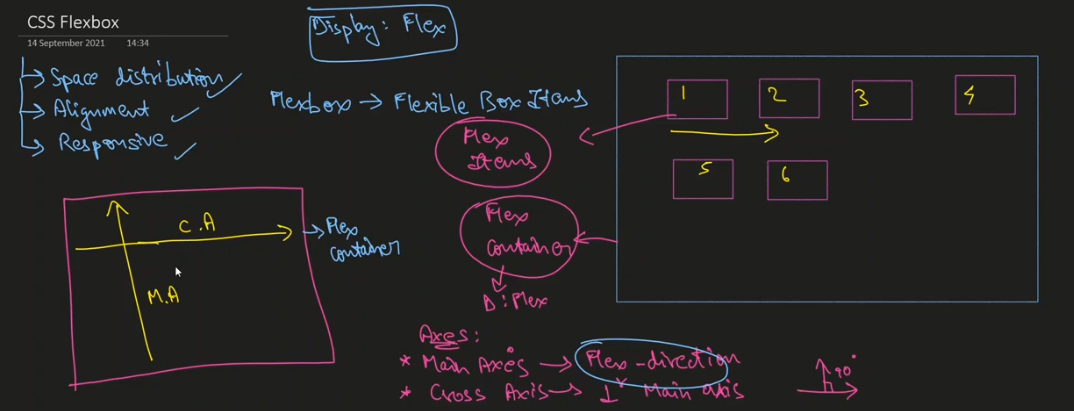 CSS Flexbox
14 September 2021 14:34
Display: Flex
Space distribution
Alignment
Responsive
Flexbox → Flexible Box Items
Flex
Items
1 2 3 4
5 6
Flex
container
D: Flex
C.A
M.A
Flex
container
Axes:
* Main Axes → Flex-direction
* Cross Axis → ⊥ Main axis
90°